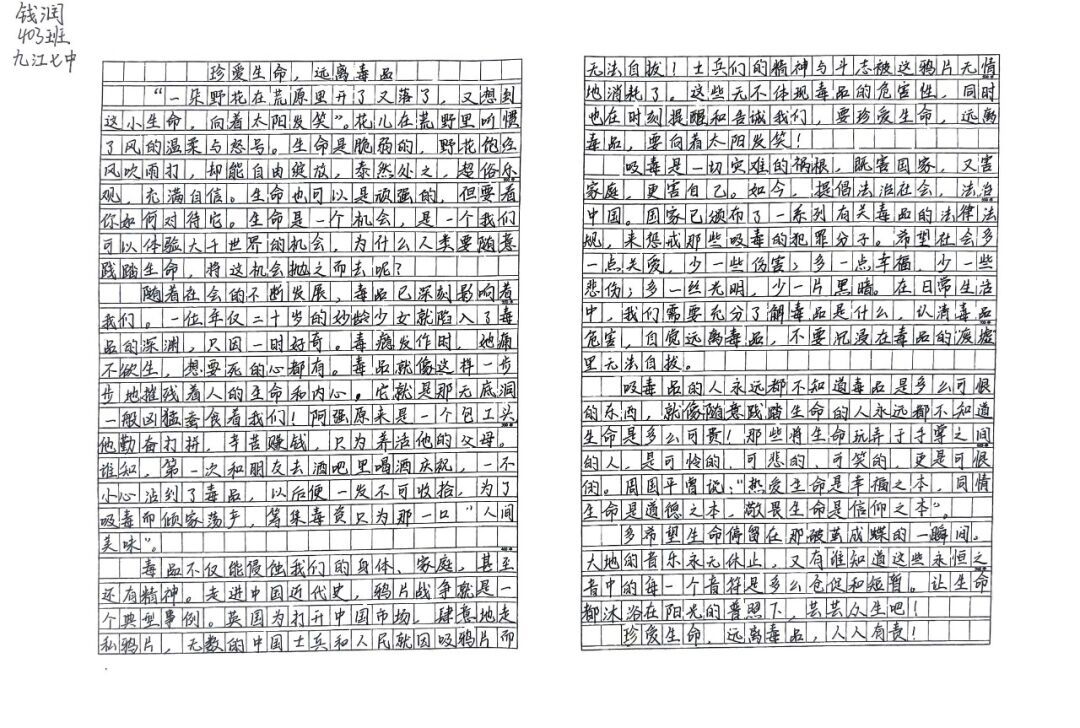 钱润
403班
九江七中
珍爱生命，远离毒品
“一朵野花在荒原里开了又落了，又想到
这小生命，向着太阳发笑”。花儿在荒野里听惯
了风的温柔与怒号。生命是脆弱的，野花饱经
风吹雨打，却能自由绽放，泰然处之，超俗乐
观，充满自信。生命也可以是顽强的，但要看
你如何对待它。生命是一个机会，是一个我们
可以体验大千世界的机会，为什么人类要随意
践踏生命，将这机会抛之而去呢？
随着社会的不断发展，毒品已深刻影响着
我们。一位年仅二十岁的妙龄少女就陷入了毒
品的深渊，只因一时好奇。毒瘾发作时，她痛
不欲生，想要死的心都有。毒品就像这样一步
步地摧残着人的生命和内心。它就是那无底洞
一般凶猛蚕食着我们！阿强原来是一个包工头
他勤奋打拼，辛苦赚钱，只为养活他的父母。
谁知，第一次和朋友去酒吧里喝酒庆祝，一不
小心沾到了毒品，以后便一发不可收拾，为了
吸毒而倾家荡产，筹集毒资只为那一口“人间
美味”。
毒品不仅能侵蚀我们的身体、家庭，甚至
还有精神。走进中国近代史，鸦片战争就是一
个典型事例。英国为打开中国市场，肆意地走
私鸦片，无数的中国士兵和人民就因吸鸦片而
无法自拔！士兵们的精神与斗志被这鸦片无情
地消耗了。这些无不体现毒品的危害性，同时
也在时刻提醒和告诫我们，要珍爱生命，远离
毒品，要向着太阳发笑！
吸毒是一切灾难的祸根，既害国家，又害
家庭，更害自己。如今，提倡法治社会，法治
中国。国家已颁布了一系列有关毒品的法律法
规，来惩戒那些吸毒的犯罪分子。希望社会多
一点关爱，少一些伤害；多一点幸福，少一些
悲伤；多一丝光明，少一片黑暗。在日常生活
中，我们需要充分了解毒品是什么，认清毒品
危害，自觉远离毒品，不要沉浸在毒品的
里无法自拔。
吸毒品的人永远都不知道毒品是多么可恨
的东西，就像随意践踏生命的人永远都不知道
生命是多么可贵！那些将生命玩弄于手掌之间
的人，是可怜的、可悲的、可笑的，更是可恨
的。周国平曾说：“热爱生命是幸福之本，同情
生命是道德之本，敬畏生命是信仰之本”。
多希望生命停留在那破茧成蝶的一瞬间。
大地的音乐永无休止，又有谁知道这些永恒之
音中的每一个音符是多么仓促和短暂。让生命
都沐浴在阳光的普照下，芸芸众生吧！
珍爱生命、远离毒品，人人有责！